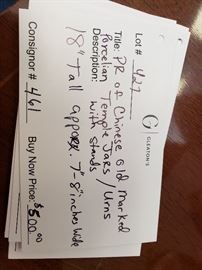 G
GLEATON'S
Lot # 427
Title: PR of Chinese old marked
Porcelian Temple Jars / Urns
Description: with stands
18" Tall approx. 7-8" inches wide
Consignor # 461 Buy Now Price: $500.00